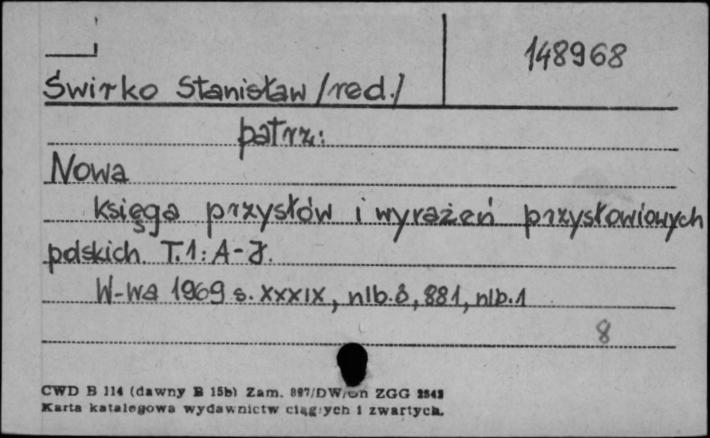 148968
Świrko Stanisław /red./
patrz:
Nowa
księga przysłów i wyrażeń przysłowiowych
polskich. T.1: A-J.
W-wa 1969 s. XXXIX, nlb. 8, 881, nlb. 1
8
CWD B 114 (dawny B 15b) Zam. 897/DW/ ZGG
Karta katalogowa wydawnictw ciągłych i zwartych.